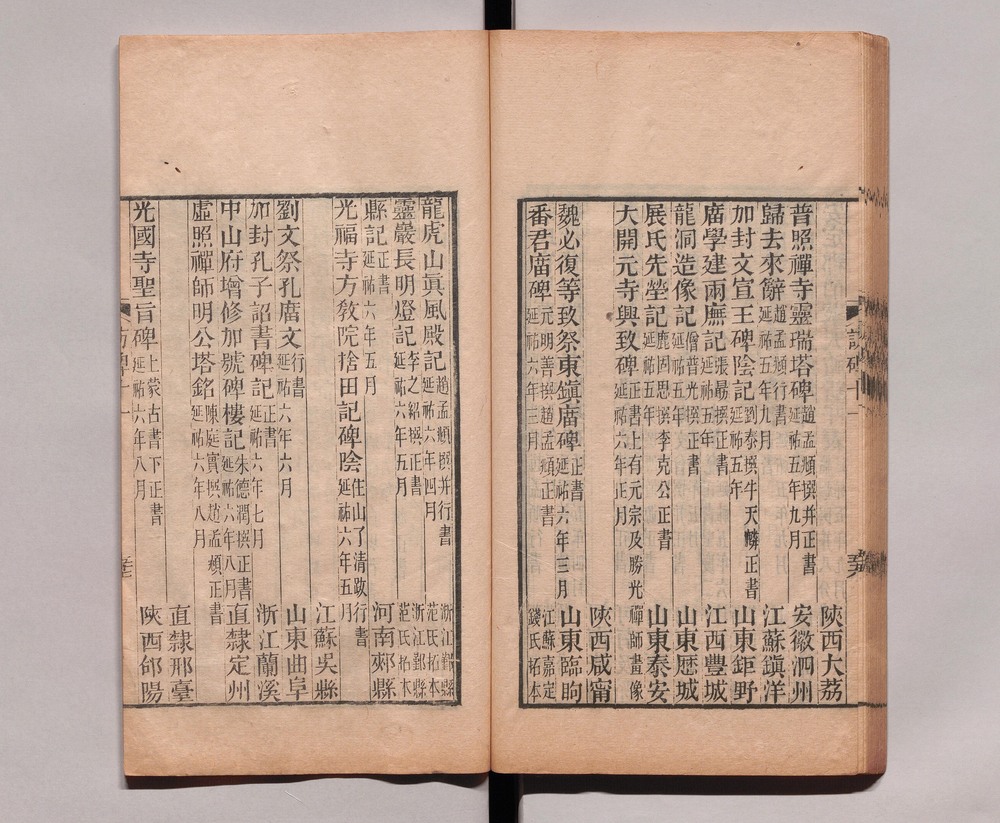 陝西大荔
普照禪寺靈瑞塔碑趙孟頫撰并正書延祐五年九月
安徽泗州
歸去來辭趙孟頫行書延祐五年九月
江蘇鎭洋
加封文宣王碑陰記劉泰撰牛天麟正書延祐五年
山東鉅野
廟學建兩廡記張最撰正書延祐五年
江西豐城
龍洞造像記僧普光撰正書延祐五年
山東歷城
展氏先塋記鹿固思撰李克公正書延祐五年
山東泰安
大開元寺興致碑正書上有元宗及勝光禪師畫像延祐六年正月
陝西咸甯
魏必復等致祭東鎭廟碑正書延祐六年三月
山東臨朐
番君廟碑元明善撰趙孟頫正書延祐六年三月
江蘇嘉定錢氏拓本
龍虎山眞風殿記趙孟頫撰并行書延祐六年四月
浙江鄞縣范氏拓本
靈巖長明燈記李之紹撰正書延祐六年五月
浙江鄞縣范氏拓本
縣記正書延祐六年五月
河南郟縣
光福寺方敎院捨田記碑陰住山了清跋行書延祐六年五月
江蘇吳縣
劉文祭孔廟文行書延祐六年六月
山東曲阜
加封孔子詔書碑記正書延祐六年七月
浙江蘭溪
中山府增修加號碑樓記朱德潤撰正書延祐六年八月
直隸定州
虛照禪師明公塔銘陳庭實撰趙孟頫正書延祐六年八月
直隸邢臺
光國寺聖旨碑上蒙古書下正書延祐六年八月
陝西郃陽